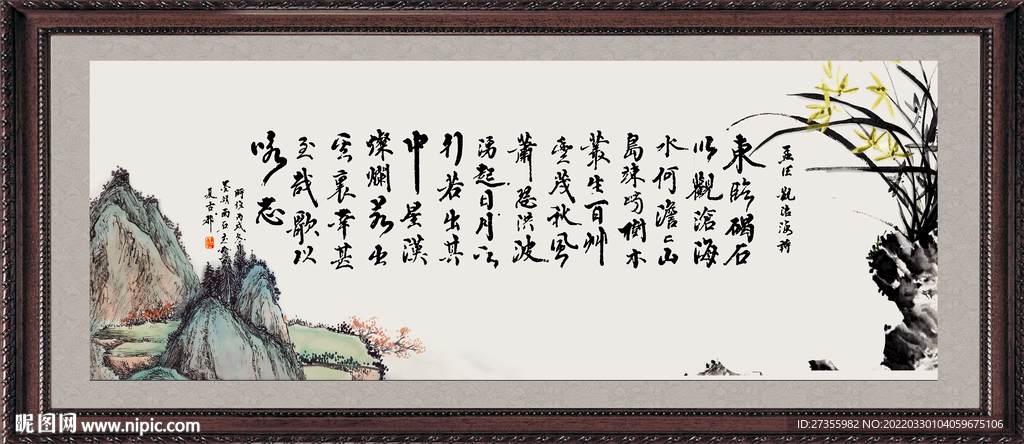 孟德 觀滄海詩
東臨碣石
以觀滄海
水何澹〻山
島竦峙樹木
叢生百艸
豐茂秋風
蕭瑟洪波
湧起日月之
行若出其
中星漢
燦爛若出
其裏幸甚
至哉歌以
咏志
昵图网 www.nipic.com
ID:27355982 NO:20220330104059675106